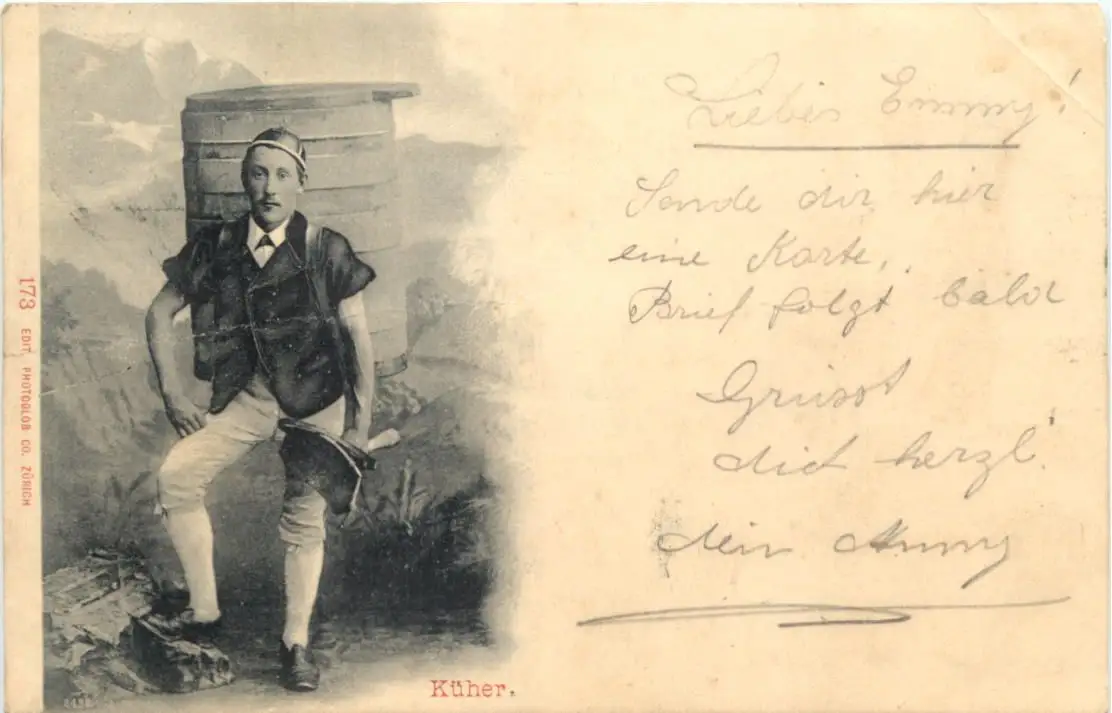 173 EDIT. PHOTOGLOB CO. ZÜRICH
Küher.
Liebes Emmy!
Sende dir hier
eine Karte,
Brief folgt bald
Grüsst
dich herzl.
dein Anny